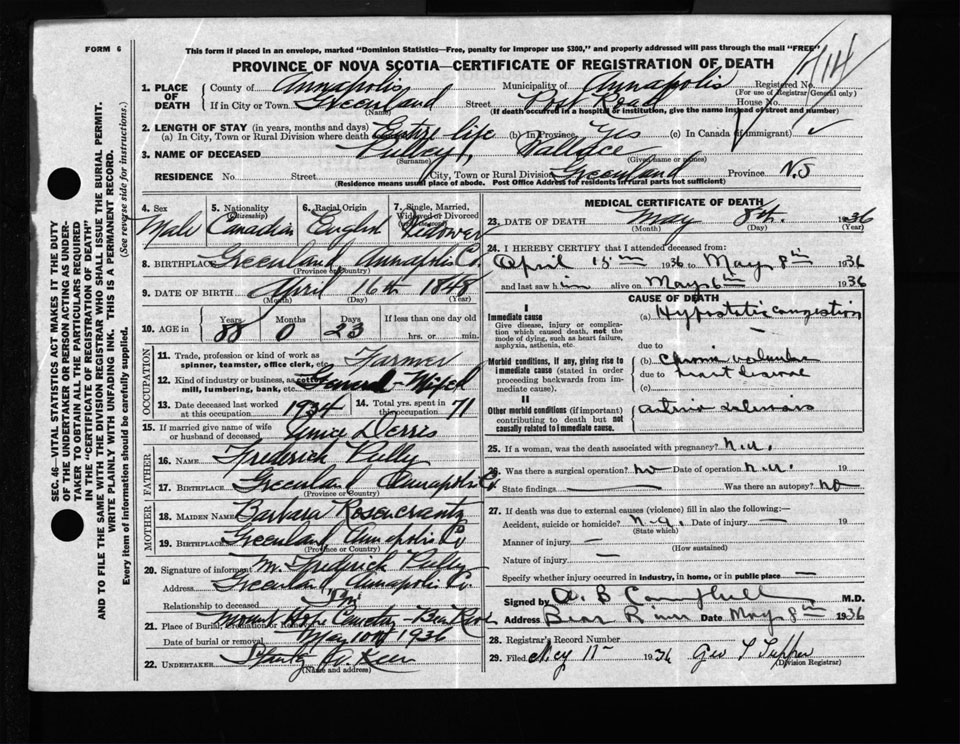 FORM 6
This form if placed in an envelope, marked "Dominion Statistics—Free, penalty for improper use $300," and properly addressed will pass through the mail "FREE"
PROVINCE OF NOVA SCOTIA—CERTIFICATE OF REGISTRATION OF DEATH
SEC. 46—VITAL STATISTICS ACT MAKES IT THE DUTY OF THE UNDERTAKER OR PERSON ACTING AS UNDERTAKER TO OBTAIN ALL THE PARTICULARS REQUIRED IN THE "CERTIFICATE OF REGISTRATION OF DEATH" AND TO FILE THE SAME WITH THE DIVISION REGISTRAR WHO SHALL ISSUE THE BURIAL PERMIT.
WRITE PLAINLY WITH UNFADING INK. THIS IS A PERMANENT RECORD.
Every item of information should be carefully supplied. (See reverse side for instructions.)
1. PLACE OF DEATH County of Annapolis Municipality of Annapolis Registered No. 
(For use of Registrar General only)
If in City or Town Greenland Street Post Road House No.
(If death occurred in a hospital or institution, give the name instead of street and number)
2. LENGTH OF STAY (in years, months and days)
(a) In City, Town or Rural Division where death Entire life (b) In Province Yes (c) In Canada (if immigrant) ✓
3. NAME OF DECEASED Wallace
(Surname) (Given name or names)
RESIDENCE No. Street City, Town or Rural Division Greenland Province N.S
(Residence means usual place of abode. Post Office Address for residents in rural parts not sufficient)
4. Sex Male
5. Nationality (Citizenship) Canadian
6. Racial Origin English
7. Single, Married, Widowed or Divorced Widower
8. BIRTHPLACE Greenland Annapolis Co.
(Province or Country)
9. DATE OF BIRTH April 16th 1848
(Month) (Day) (Year)
10. AGE in Years 88 Months 0 Days 23 If less than one day old
hrs. or min.
OCCUPATION
11. Trade, profession or kind of work as spinner, teamster, office clerk, etc. Farmer
12. Kind of industry or business, as cotton mill, lumbering, bank, etc. General - Mixed
13. Date deceased last worked at this occupation 1934
14. Total yrs. spent in this occupation 71
15. If married give name of wife or husband of deceased
FATHER
16. Name Frederick
17. Birthplace Greenland Annapolis Co
(Province or Country)
MOTHER
18. Maiden Name Barbara Rosencrantz
19. Birthplace Greenland Annapolis Co
(Province or Country)
20. Signature of informant M. Frederick
Address Greenland Annapolis Co.
Relationship to deceased Son
21. Place of Burial, Cremation or Removal Mount Hope Cemetery - Bear River
Date of burial or removal May 10th 1936
22. UNDERTAKER
(Name and address)
MEDICAL CERTIFICATE OF DEATH
23. DATE OF DEATH May 8th. 1936
(Month) (Day) (Year)
24. I HEREBY CERTIFY that I attended deceased from:
April 15th 1936 to May 8th 1936
and last saw him alive on May 6th 1936
CAUSE OF DEATH
I
Immediate cause
Give disease, injury or complication which caused death, not the mode of dying, such as heart failure, asphyxia, asthenia, etc.
(a) Hypostatic congestion
due to
Morbid conditions, if any, giving rise to immediate cause (stated in order proceeding backwards from immediate cause).
(b) chronic valvular
due to heart disease
(c)
II
Other morbid conditions (if important) contributing to death but not causally related to immediate cause.
arterio sclerosis
25. If a woman, was the death associated with pregnancy? n.a.
26. Was there a surgical operation? no Date of operation n.a. 19
State findings Was there an autopsy? no
27. If death was due to external causes (violence) fill in also the following:—
Accident, suicide or homicide? n.a. Date of injury — 19
(State which)
Manner of injury —
(How sustained)
Nature of injury —
Specify whether injury occurred in industry, in home, or in public place —
Signed by A. B Campbell M.D.
Address Bear River Date May 8th 1936
28. Registrar's Record Number
29. Filed May 11th 1936 Geo
(Division Registrar)